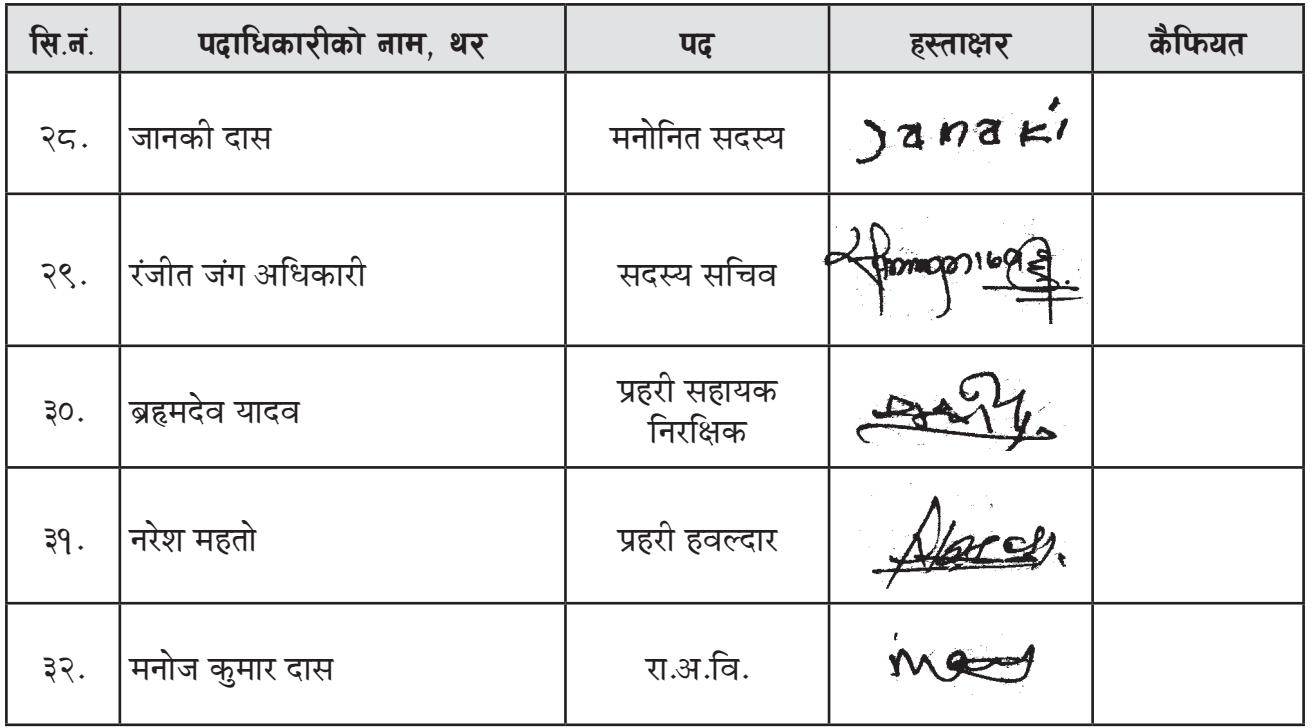 सि.नं. पदाधिकारीको नाम, थर पद हस्ताक्षर कैफियत
२८. जानकी दास मनोनित सदस्य Janaki
२९. रंजीत जंग अधिकारी सदस्य सचिव
३०. ब्रहृमदेव यादव प्रहरी सहायक
निरक्षिक
३१. नरेश महतो प्रहरी हवल्दार
३२. मनोज कुमार दास रा.अ.वि.